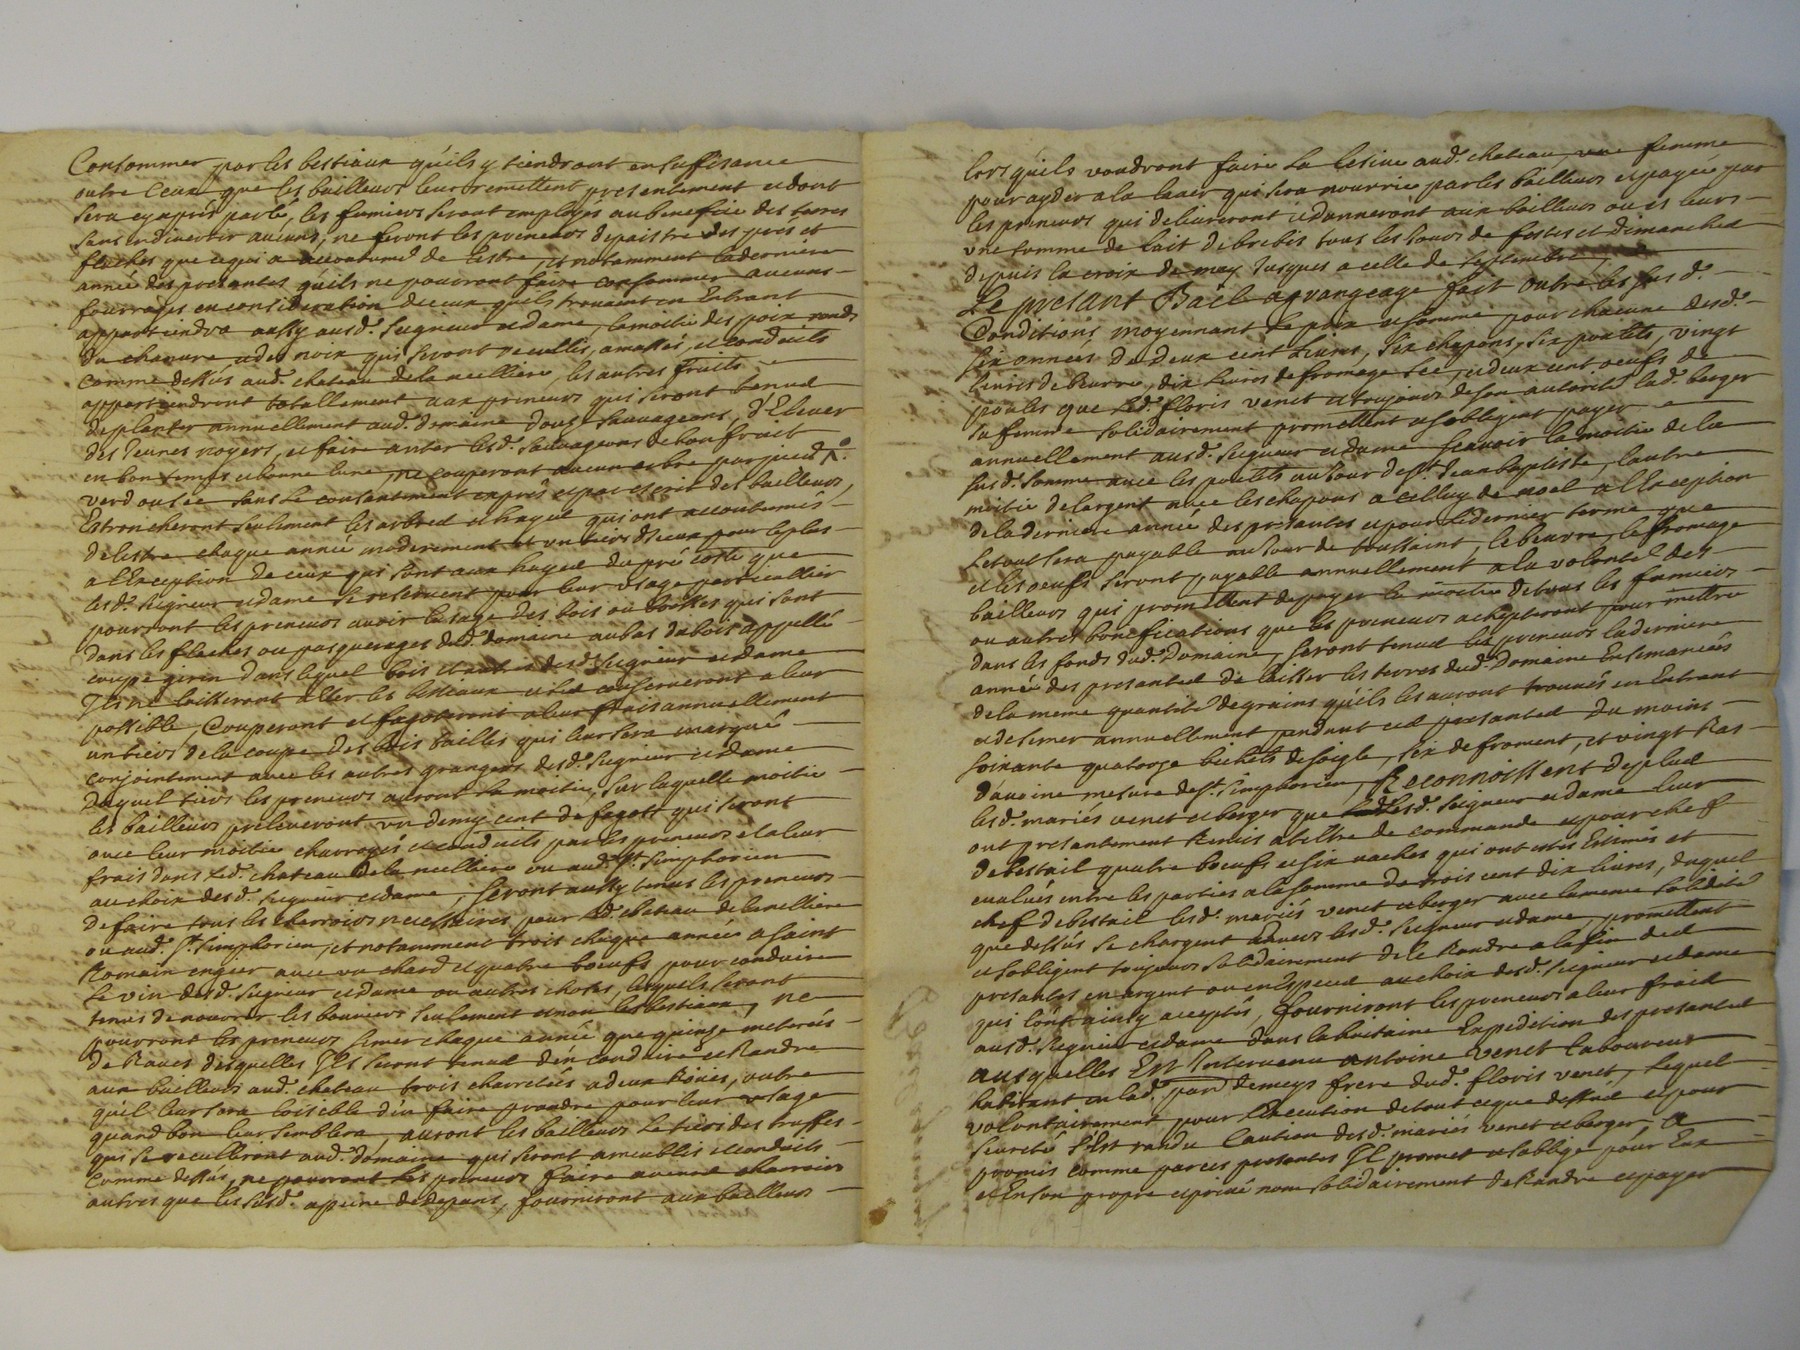 Consommer par les bestiaux qu'ils y tiendront en suffisance
outre Ceux que les bailleurs leur remettent presentement et dont
sera cyapres parlé, les fumiers seront employés au benefice des terres
sans endivertir aucuns, ne feront les preneurs depaistre des pres et
flaches que ce qui a accoutumé de l'estre, et notamment la derniere
année des presantes qu'ils ne pourront faire consommer aucuns
fourrages en consideration de ceux quils trouvent en Entrant
appartiendra aussy ausd. Seigneur et dame, la moitié des poix ronds
du chanvre et des noix qui seront recullis, amassés, et conduits
comme dessus aud. chateau de la nelliere, les autres fruits
appartiendront totallement aux preneurs qui seront tenus
de planter annuellement aud. domaine douze sauvageons, d'Elever
des Jeunes noyers, et faire anter lesd. sauvageons de bon fruit
en bon temps et bonne lune, ne couperont aucun arbre par pied
verd ou sec sans le consentement exprés et par escrit des bailleurs,
Estroncheront seulement les arbres et hayes qui ont accoutumés
de l'estre chaque année moderement et un tiers d'iceux pour le plus
a l'Exception de ceux qui sont aux hayes du pré coste que
lesd. seigneur et dame se reservent pour leur usage particullier
pourront les preneurs avoir l'usage des bois ou brosses qui sont
dans les flaches ou pasquerages dud. domaine au bas du bois appellé
coupe girin dans lequel bois et autres desd. Seigneur et dame
Ils ne laisseront aller les bestiaux et les conserveront a leur
possible, Couperont et fagoteront a leur frais annuellement
un tiers de la coupe des bois taillis qui leur sera marqué
conjointement avec les autres grangers desd. Seigneur et dame
Duquel tiers les preneurs auront la moitié, sur laquelle moitié
les bailleurs preleveront un demy cent de fagots qui seront
avec leur moitié charroyés et conduits par les preneurs et a leur
frais dans led. chateau de la nelliere ou aud. St. Simphorien
au choix desd. Seigneur et dame, seront aussy tenus les preneurs
de faire tous les charrois necessaires pour led. chateau de la nelliere
ou aud. St. Simphorien, et notamment trois chaque année a saint
Romain en gier avec un chard et quatre boeufs pour conduire
le vin desd. Seigneur et dame ou autres choses, lesquels seront
tenus de nourrir les bouviers seulement et non les bestiaux, ne
pourront les preneurs semer chaque année que quinze meterées
de Raves desquelles Ils seront tenus d'en conduire et Randre
aux bailleurs aud. chateau trois charretées a deux Rines, outre
quil leur sera loisible d'en faire prendre pour leur usage
quand bon leur semblera, auront les bailleurs le tiers des truffes
qui se reculliront aud. domaine qui seront ameublis et conduits
comme dessus, ne pourront les preneurs faire aucuns charrois
autres que les susd. a peine de depans, fourniront aux bailleurs
lors qu'ils voudront faire la lesive aud. chateau, une femme
pour ayder a la laver qui sera nourrie par les bailleurs et payée par
les preneurs qui delivreront et donneront aux bailleurs ou es leurs
une somme de lait de brebis tous les Jours de festes et dimanches
depuis la croix de may Jusques a celle de septembre,
Le presant Bail agrangeage fait outre les susd.
Conditions moyennant le prix et somme pour chacune desd.
six années de deux cent Livres, six chapons, six poulets, vingt
livres de Beurre, dix Livres de fromage sec, et deux cent oeufs de
poules que led. floris venet et toujours de son autorité lad. berger
sa femme solidairement promettent et s'obligent payer
annuellement ausd. Seigneur et dame scavoir la moitié de la
susd. somme avec les poulets au Jour de St. Jean baptiste, l'autre
moitié de l'argent avec les chapons a celluy de noel a l'Exception
de la derniere année des presantes et pour le dernier terme que
le tout sera payable au Jour de toussaint, le beurre, le fromage
et les oeufs seront payable annuellement a la volonté des
bailleurs qui promettent de payer la moitié de tous les fumiers
ou autres bonefications que les preneurs achepteront pour mettre
dans les fonds dud. Domaine, seront tenus les preneurs la derniere
année des presantes de laisser les terres dud. Domaine Ensemancées
de la meme quantité de grains qu'ils les auront trouvés en Entrant
et de semer annuellement pendant ces presantes du moins
soixante quatorze bichets de soigle, six de froment, et vingt Ras
d'avoine mesure de St. simphorien, Reconnoissent de plus
lesd. mariés venet et berger que lesd. Seigneur et dame leur
ont presantement Remis a tiltre de commande et pour chef
de bestail quatre boeufs et six vaches qui ont estés Estimés et
evalués entre les parties a la somme de trois cent dix livres, duquel
chef de bestail lesd. mariés venet et berger avec la meme solidité
que dessus se chargent Envers lesd. Seigneur et dame, promettent
et s'obligent toujours solidairement de le Randre a la fin des
presantes en argent ou en Especes au choix desd. Seigneur et dame
qui l'ont ainsy acceptés, fourniront les preneurs a leur frais
ausd. Seigneur et dame dans la huitaine Expedition des presantes
ausquelles Est Intervenu antoine venet laboureur
habitant en lad. parr. demeys frere dud. floris venet, lequel
volontairement, pour l'Execution de tout ce que dessus et pour
seureté s'est randu Caution desd. mariés venet et berger, a
promis comme par ces presantes Il promet et s'oblige pour Eux
et En son propre et privé nom solidairement de Randre et payer